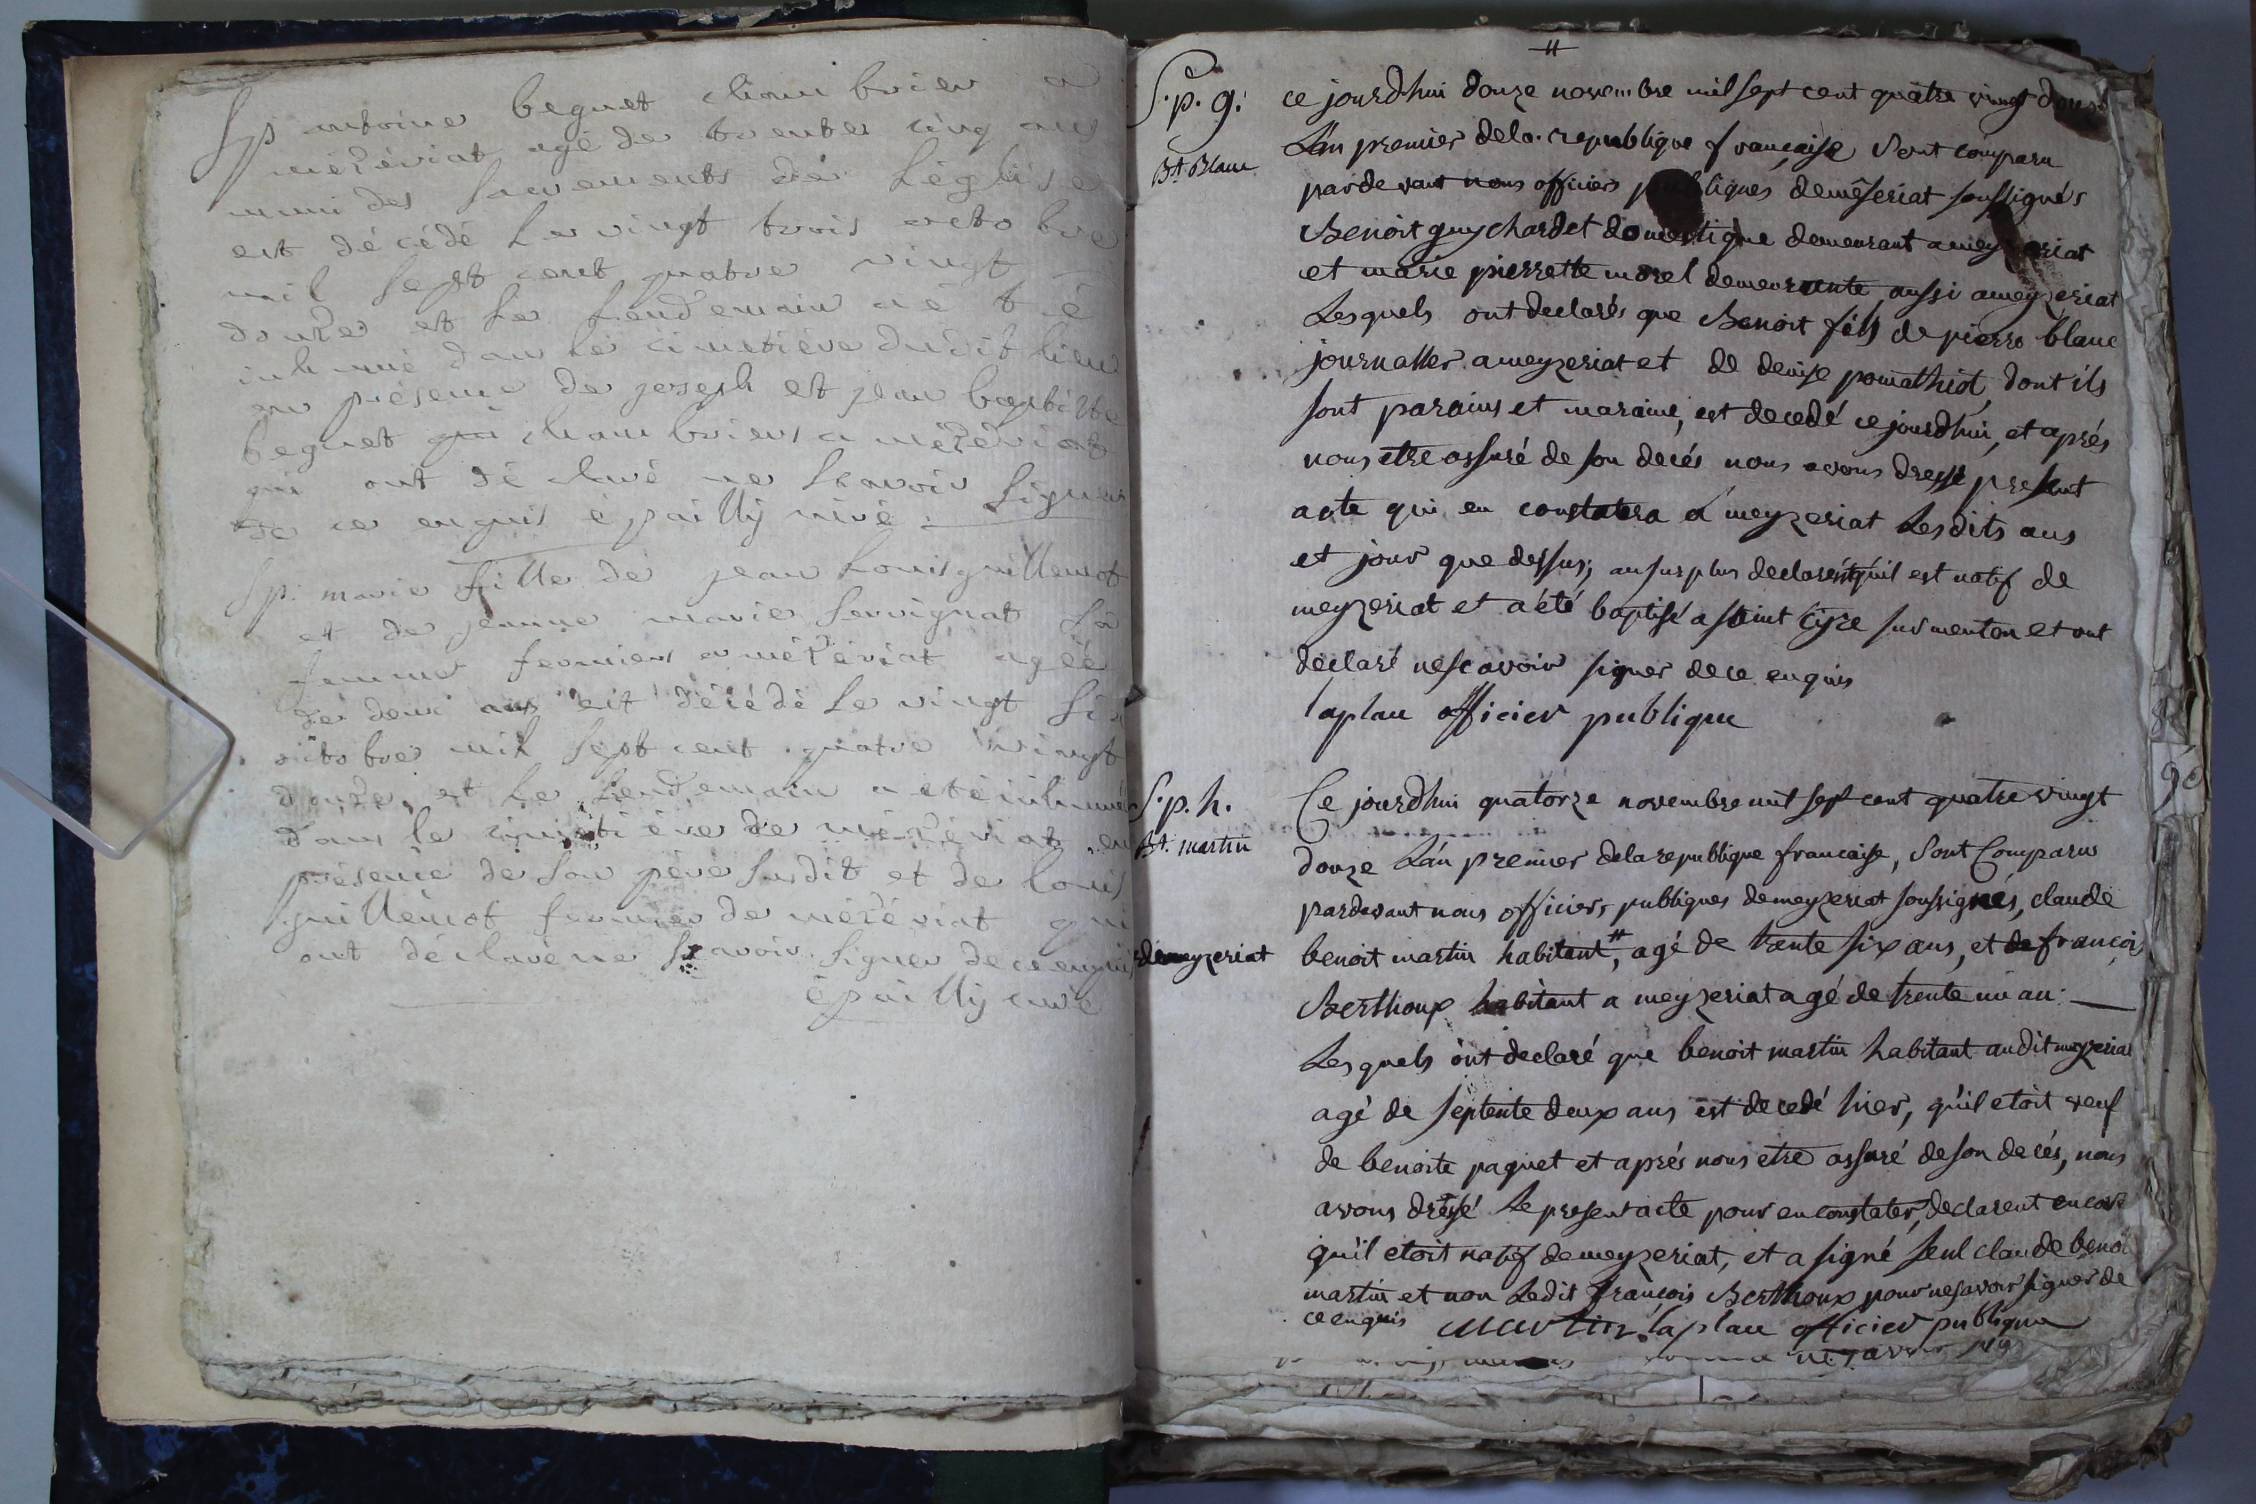 Sp antoine beguet chambrier a
mézériat agé de trentes cinq ans
muni des sacrements dé L'église
est décédé Le vingt trois octobre
mil sept cent quatre vingt
douze et Le Lendemain a é t é
inhumé dans Le cimetière dudit Lieu
en présence de joseph et jean baptiste
beguet chambriers a mézériat
qui ont dé claré ne scavoir signer
de ce enquis épailly curé
Sp. marie fille de jean Louis guillemot
et de jeanne marie servignat sa
femme fermiers a mézériat agée
de deux ans est décédé Le vingt six
octobre mil sept cent quatre vingt
douze, et Le Lendemain a été inhumée
dans le cimetière de mézériat en
présence de son père susdit et de louis
guillemot fermier de mézériat qui
ont déclaré ne scavoir signer de ce enquis
épailly curé
S. p. g. ce jourdhui douze novembre mil sept cent quatre vingt douze
L'an premier de la republique francaise sont comparu
Bt. Blanc pardevant nous officiers publiques demêseriat soussignés
Benoit guychardet domestique demeurant a meyzeriat
et marie pierrette morel demeurante aussi a meyzeriat
Lesquels ont declarés que Benoit fils de pierre blanc
journallier a meyzeriat et de denise pomathiot, dont ils
sont parains et maraine, est decedé ce jourdhui, et aprés
nous etre assuré de son decés nous avons dressé present
acte qui en constatera a meyzeriat Lesdits ans
et jour que dessus, au surplus declarent quil est natif de
meyzeriat et a été baptisé a saint Cyre sur menton et ont
declaré ne scavoir signer de ce enquis
laplau officier publique
S. p. h. Ce jourdhui quatorze novembre mil sept cent quatre vingt
Bt. martin douze L'an premier dela republique francaise, Sont Comparus
pardevant nous officiers publiques de meyzeriat soussignés, claude
demeyzeriat benoit martin habitant #, agé de trente six ans, et de françois
Berthoux habitant a meyzeriat agé de trente un an
Lesquels ont declaré que benoit martin habitant audit meyzeriat
agé de septente deux ans est decedé hier, qu'il etoit veuf
de benoite paquet et aprés nous etre assuré de son decés, nous
avons dressé Le present acte pour en constater, declarent encore
qu'il etoit natif de meyzeriat, et a signé seul claude benoi
martin et non Ledit françois Berthoux pour ne savoir signer de
ce enquis martin. laplau officier publique